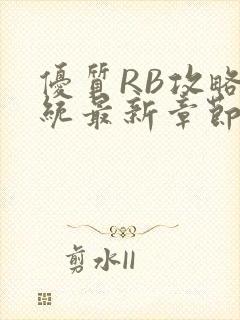 優質RB攻略
統最新章節
剪水II